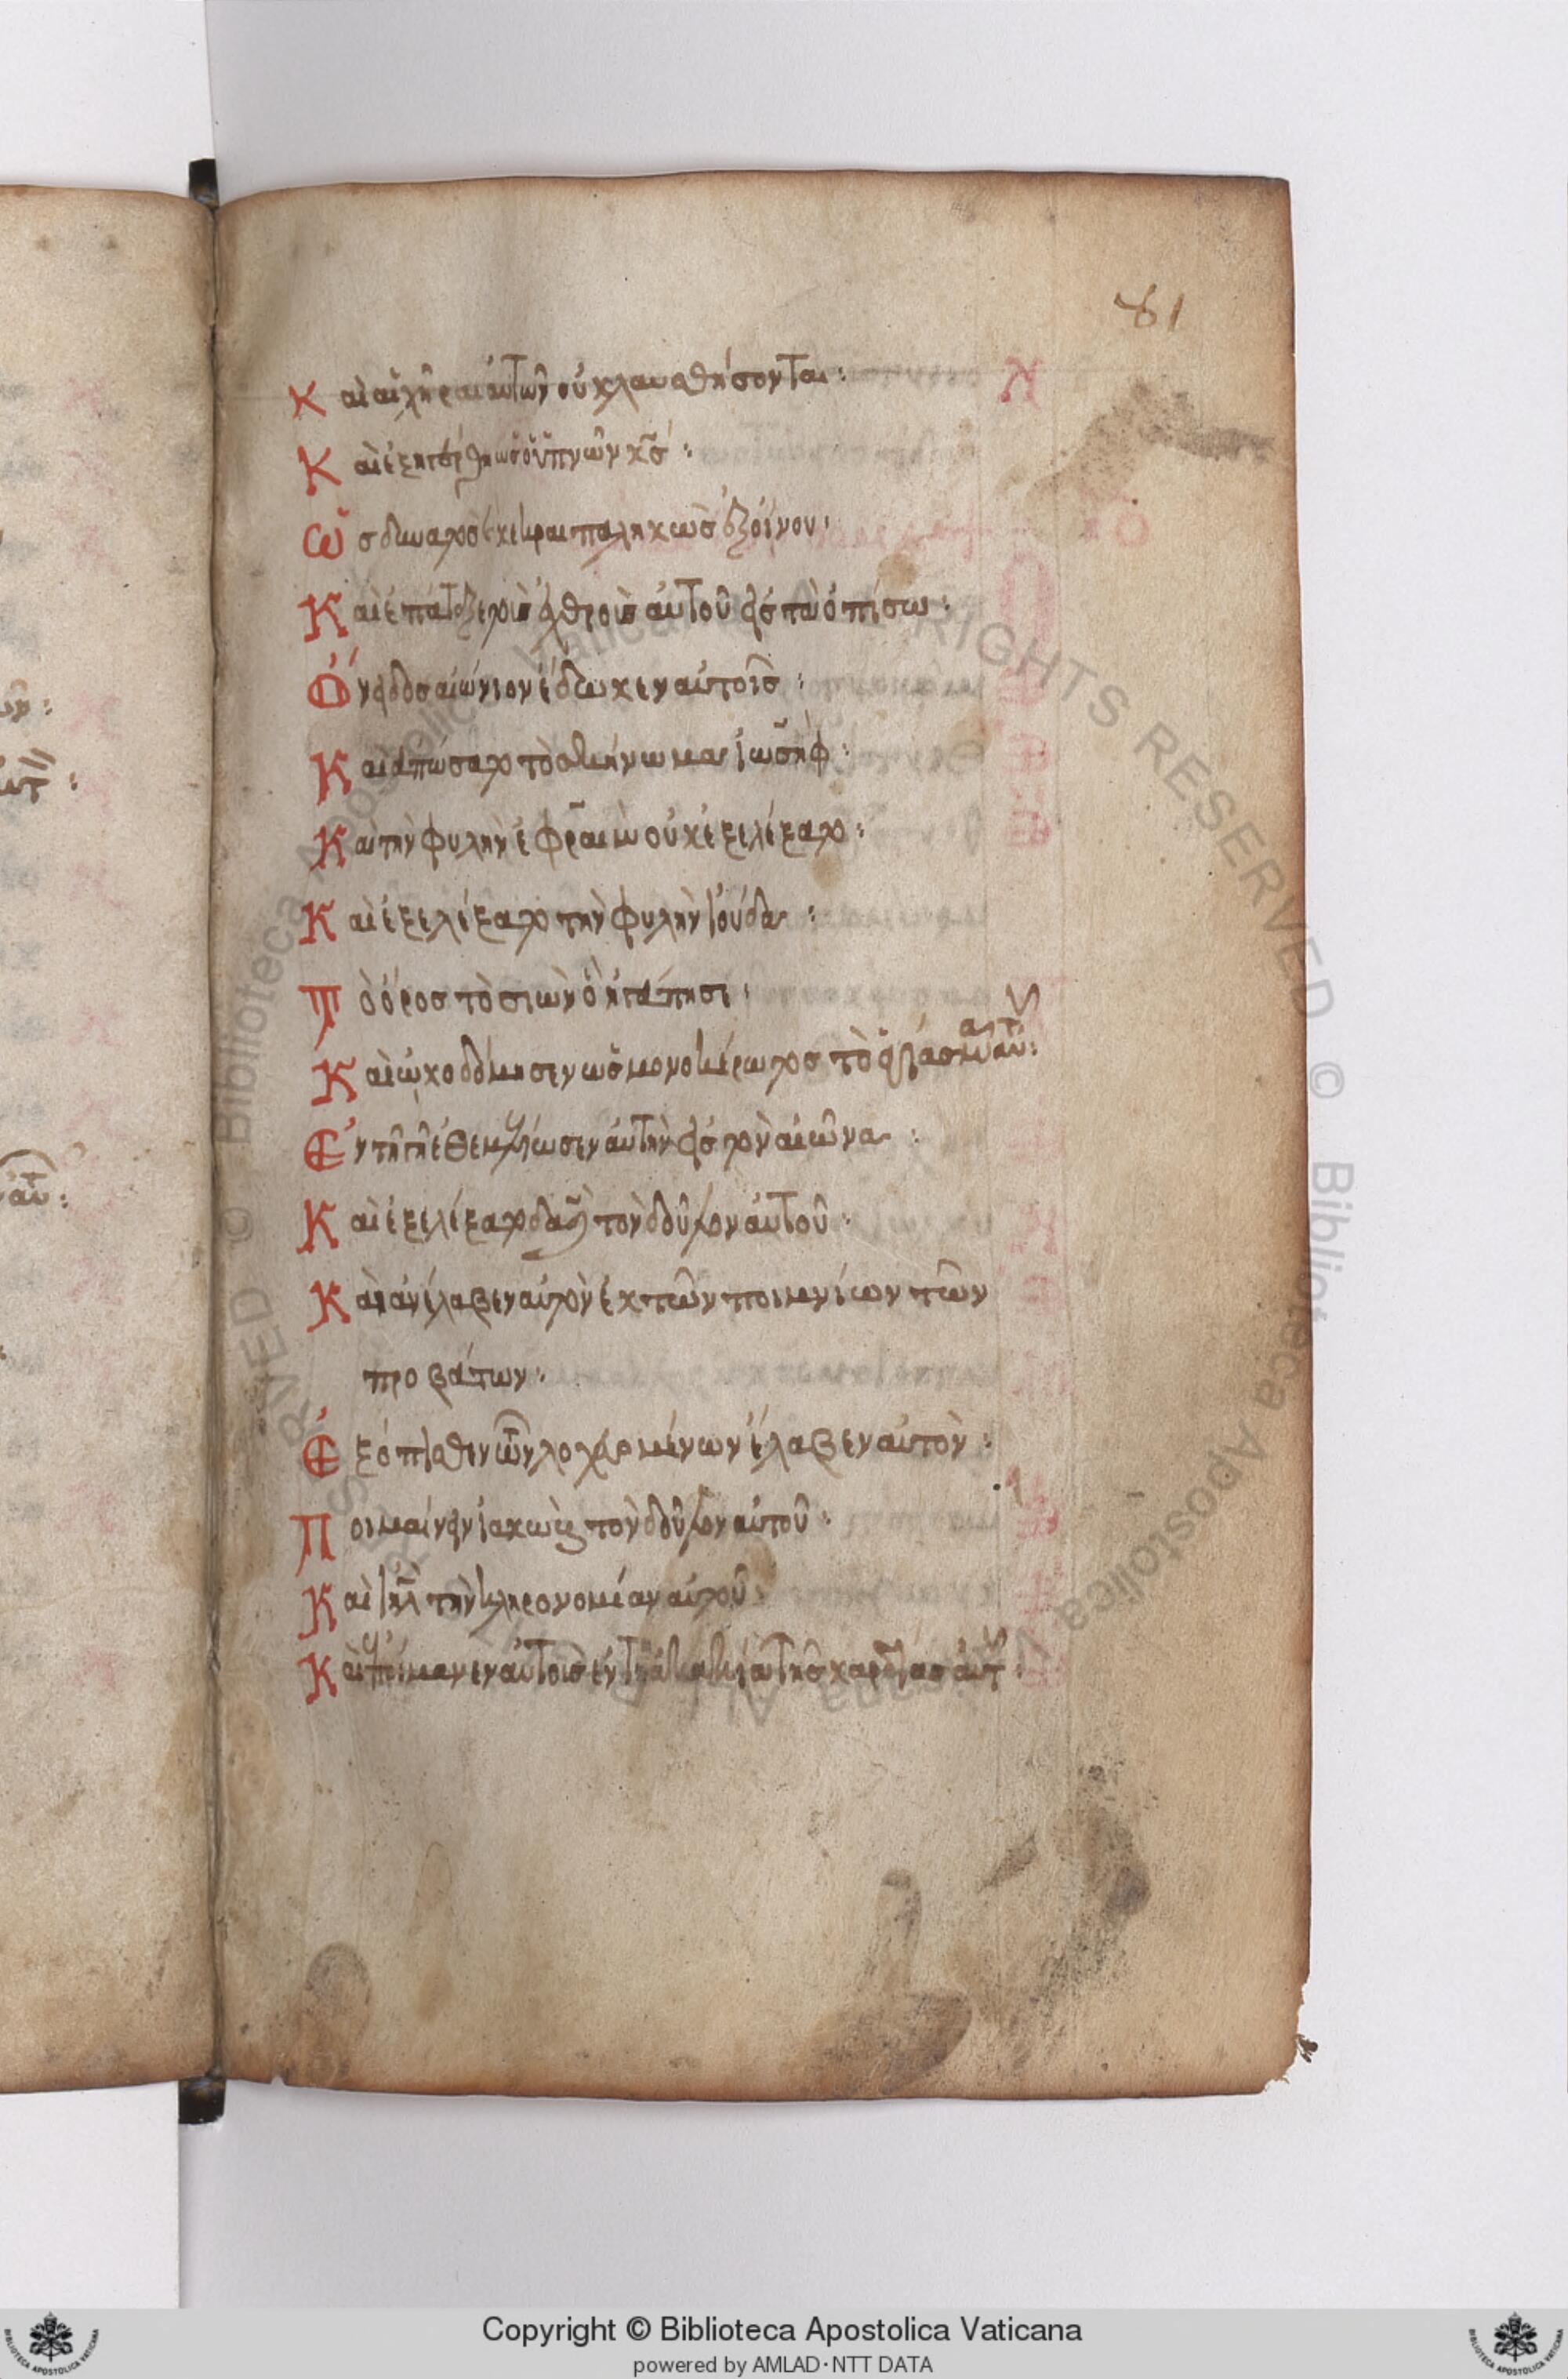 81
Καὶ αἱ χῆραι αὐτῶν οὐ κλαυσθήσονται:
Καὶ ἐξηγέρθη ὡς ὁ ὑπνῶν κς:
Ὡς δυνατὸς κεκραιπαληκὼς ἐξ οἴνου:
Καὶ ἐπάταξε τοὺς ἐχθροὺς αὐτοῦ εἰς τὰ ὀπίσω:
Ὄνειδος αἰώνιον ἔδωκεν αὐτοῖς:
Καὶ ἀπώσατο τὸ σκήνωμα ἰωσήφ:
Καὶ τὴν φυλὴν ἐφραὶμ οὐκ ἐξελέξατο:
Καὶ ἐξελέξατο τὴν φυλὴν ἰούδα:
Τὸ ὄρος τὸ σιὼν ὃ ἠγάπησε:
Καὶ ὠκοδόμησεν ὡς μονοκέρωτος τὸ ἁγίασμα αὐτ:
Ἐν τῇ γῇ ἐθεμελίωσεν αὐτὴν εἰς τὸν αἰῶνα:
Καὶ ἐξελέξατο δαδ τὸν δοῦλον αὐτοῦ:
Καὶ ἀνέλαβεν αὐτὸν ἐκ τῶν ποιμνίων τῶν
προβάτων:
Ἐξόπισθεν τῶν λοχευομένων ἔλαβεν αὐτὸν:
Ποιμαίνειν ἰακὼβ τὸν δοῦλον αὐτοῦ:
Καὶ ιηλ τὴν κληρονομίαν αὐτοῦ
Καὶ ἐποίμανεν αὐτοὺς ἐν τῇ ἀκακίᾳ τῆς καρδίας αὐτ:
Copyright © Biblioteca Apostolica Vaticana
powered by AMLAD·NTT DATA